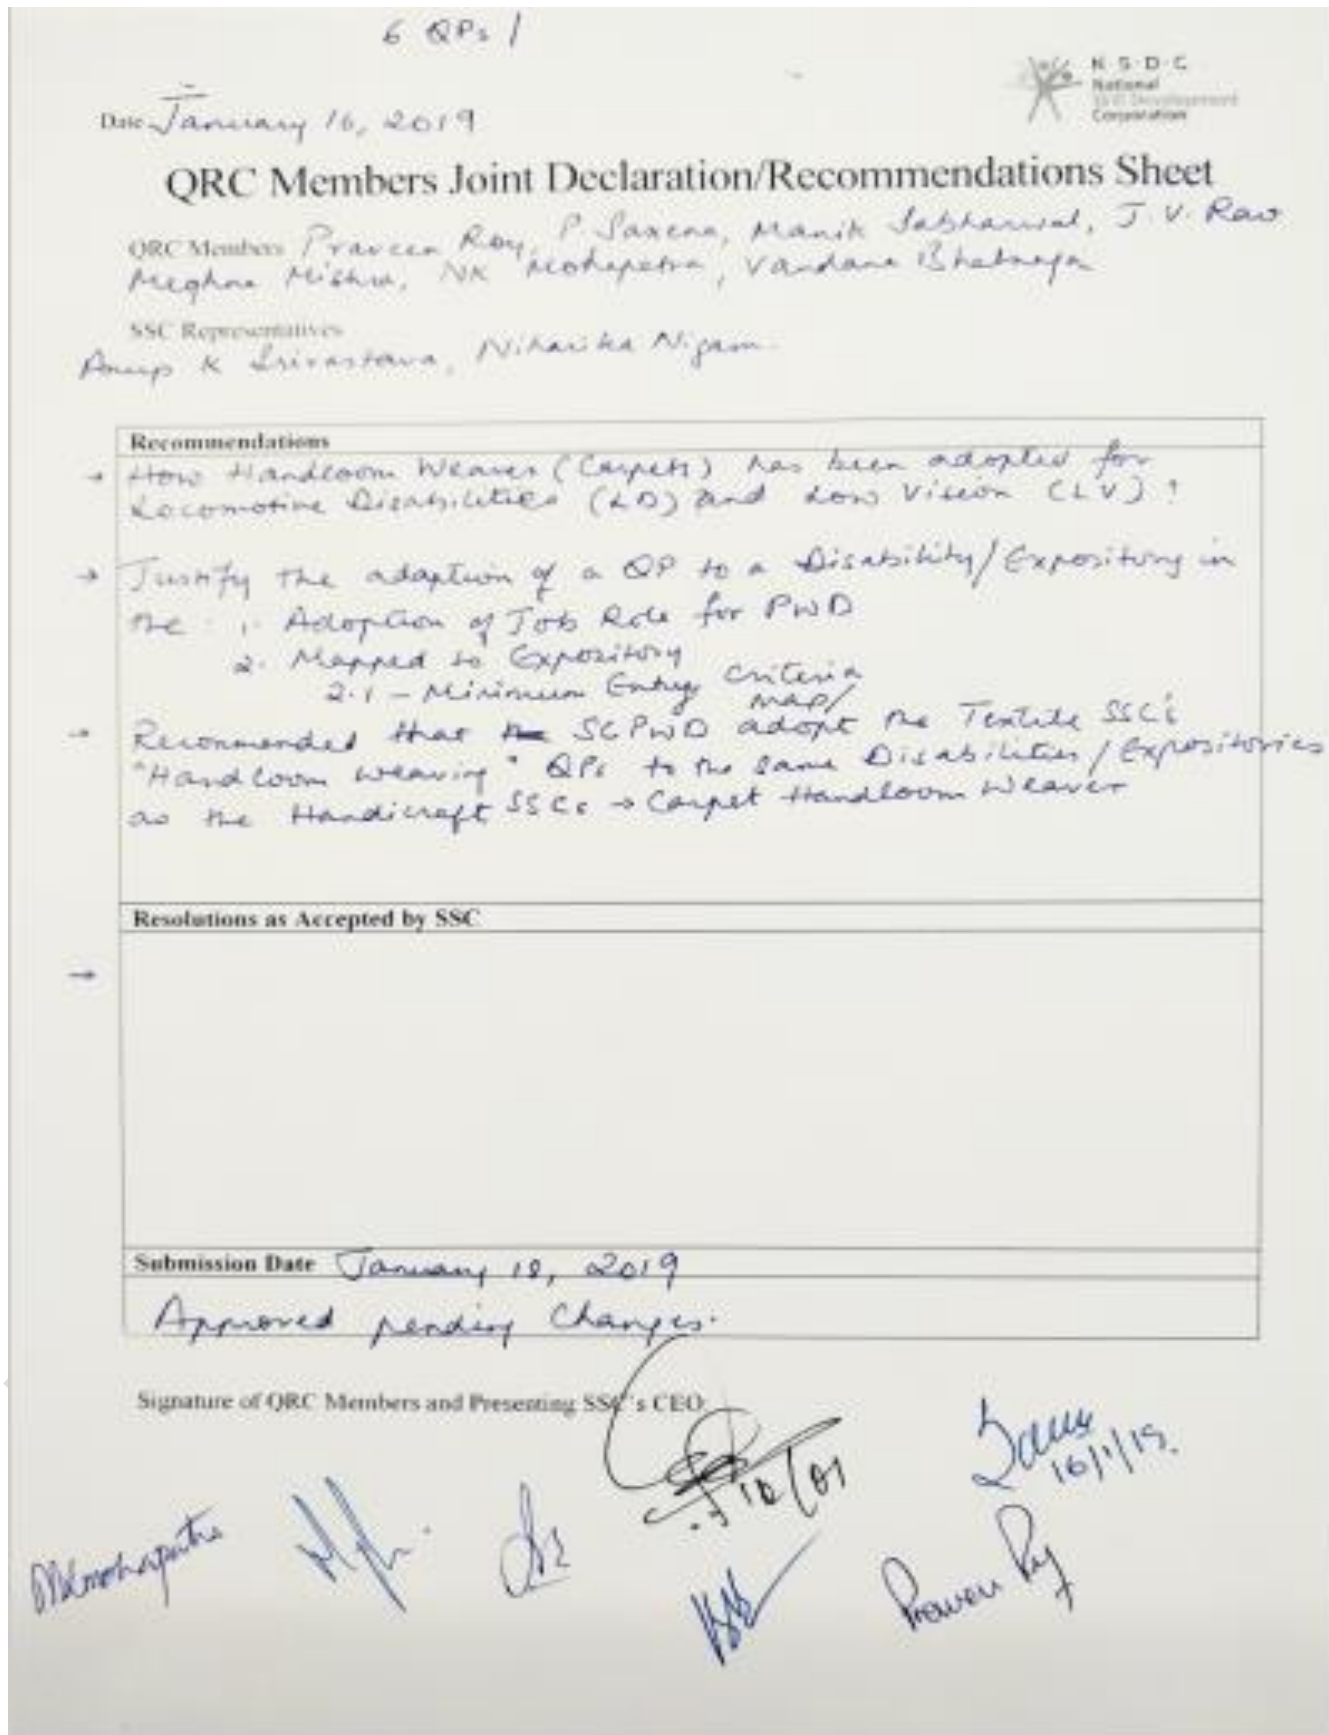 6 QPs /
N·S·D·C
National
Skill Development
Corporation
Date January 16, 2019
QRC Members Joint Declaration/Recommendations Sheet
QRC Members Praveen Roy, P. Saxena, Manik Sabharwal, J.V. Rao
Meghna Mishra, NK Mohapatra, Vandana Bhatnagar
SSC Representatives
Anup K Srivastava, Niharika Nigam
Recommendations
→ How Handloom Weaver (Carpets) has been adopted for
Locomotive Disabilities (LD) and Low Vision (LV)?
→ Justify the adaption of a QP to a Disability/Expository in
the : 1. Adoption of Job Role for PWD
2. Mapped to Expository
2.1 - Minimum Entry Criteria
map/
→ Recommended that SCPWD adopt the Textile SSC's
"Handloom Weaving" QPs to the same Disabilities/Expositories
as the Handicraft SSCs → Carpet Handloom Weaver
Resolutions as Accepted by SSC
→
Submission Date January 18, 2019
Approved pending Changes.
Signature of QRC Members and Presenting SSC's CEO
16/01
16/1/19.
NKmohapatra
Praveen Roy